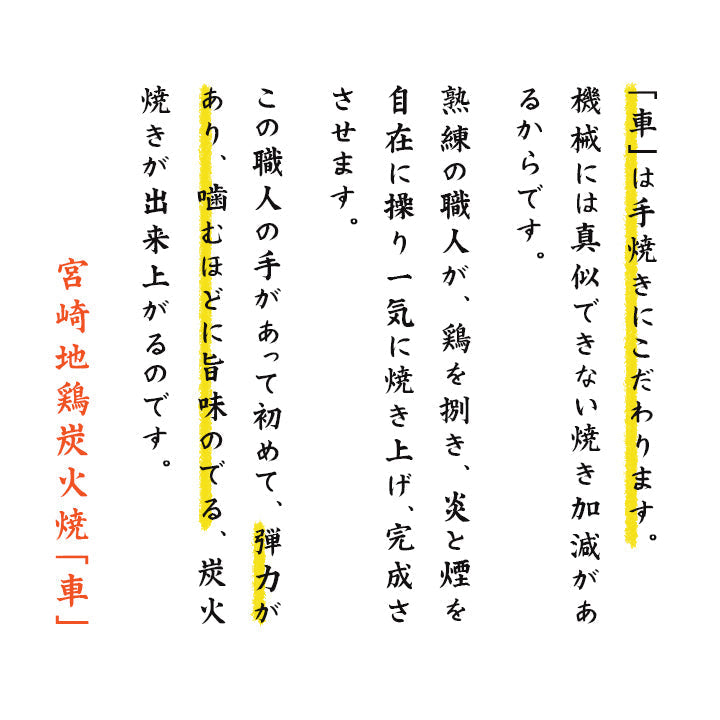 「車」は手焼きにこだわります。
機械には真似できない焼き加減があ
るからです。
熟練の職人が、鶏を捌き、炎と煙を
自在に操り一気に焼き上げ、完成さ
させます。
この職人の手があって初めて、弾力が
あり、噛むほどに旨味のでる、炭火
焼きが出来上がるのです。
宮崎地鶏炭火焼「車」